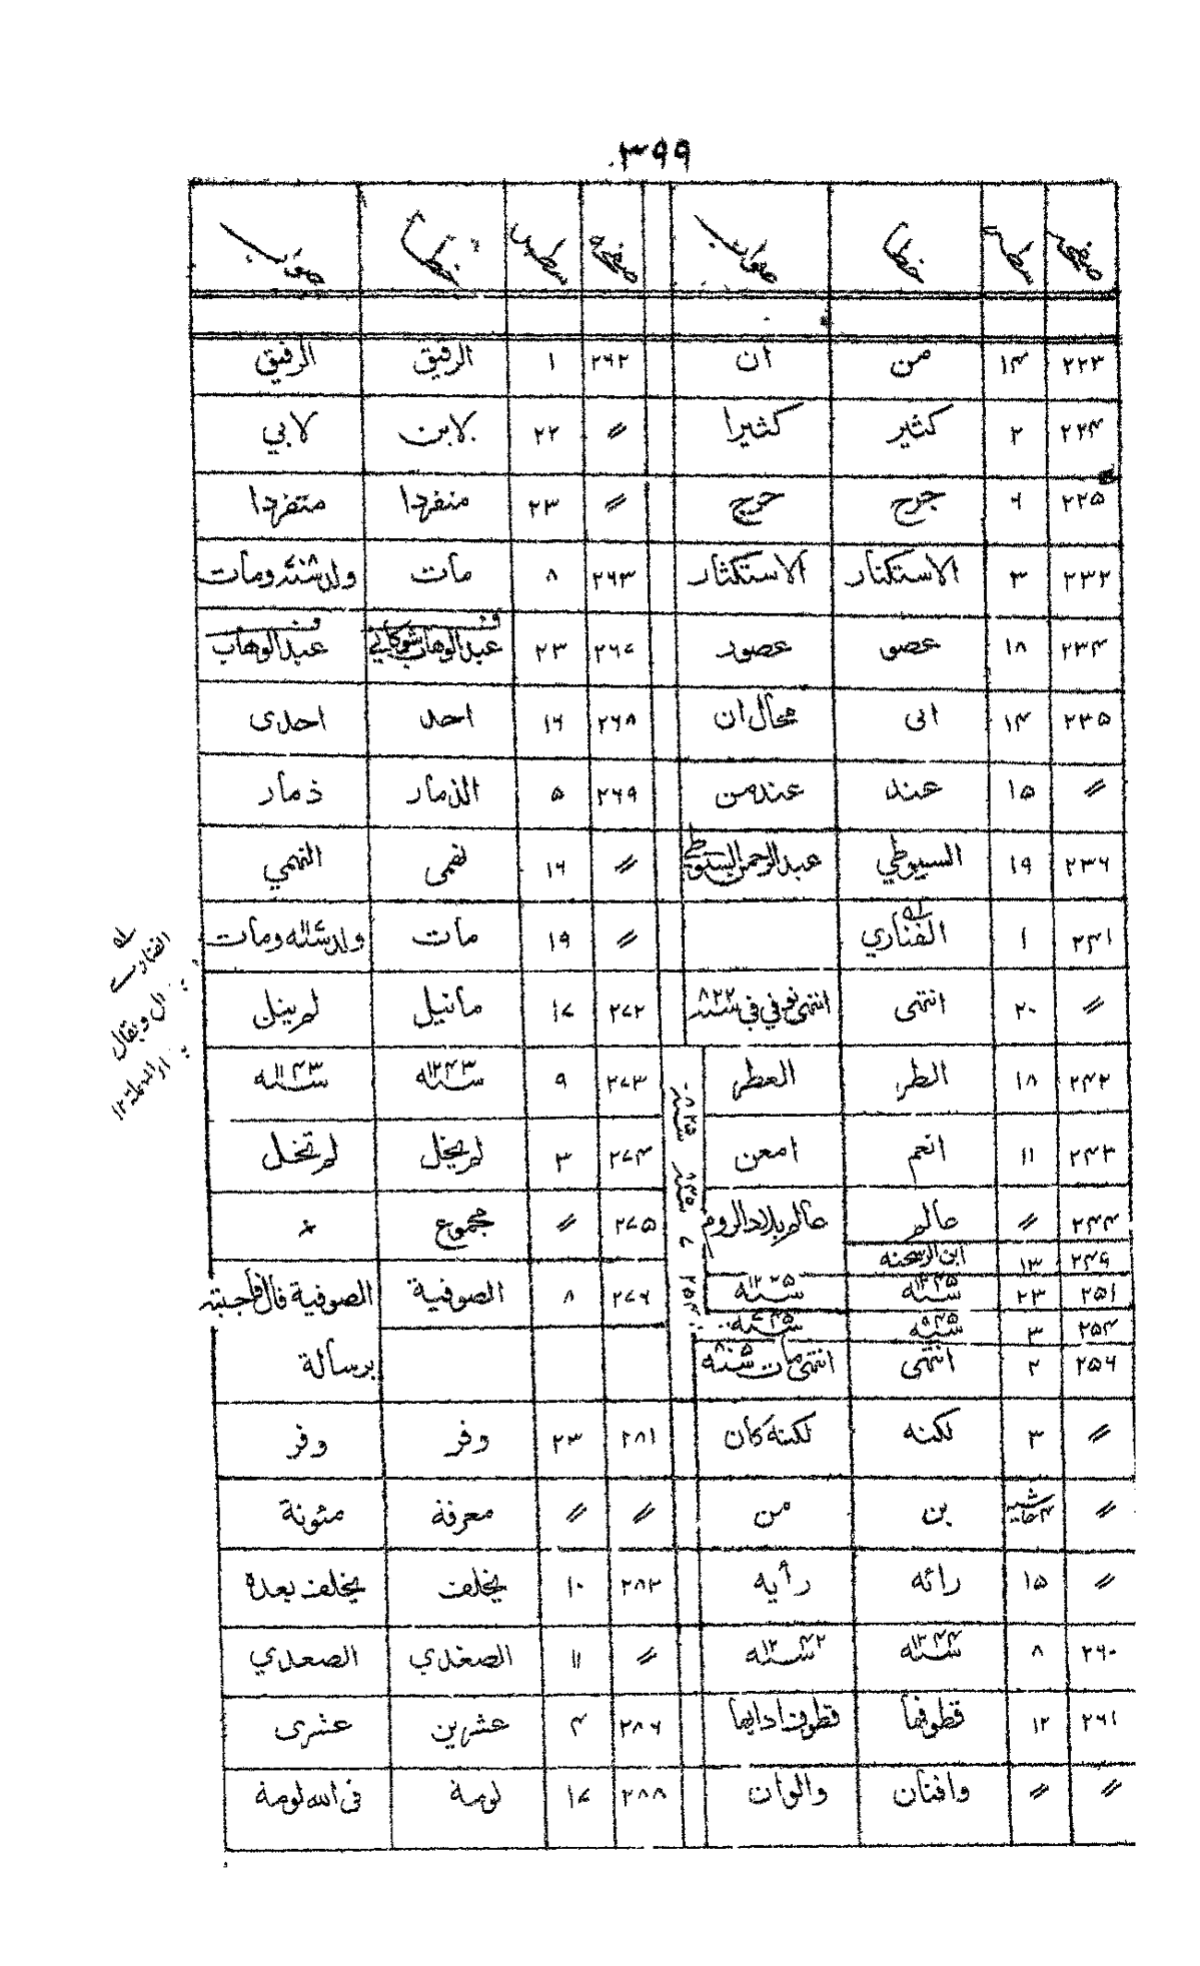 ٣٩٩
صفحه سطر خطا صواب صفحه سطر خطا صواب
٢٢٣ ١٤ من ان ٢٦٢ ١ الرفيق الرقيق
٢٢٤ ٢ كثير كثيرا 〃 ٢٢ لابن لابي
٢٢٥ ٦ جرح حرج 〃 ٢٣ منفردا متفردا
٢٣٢ ٣ الاستكنار الاستكثار ٢٦٣ ٨ مات ومات
٢٣٤ ١٨ عصو عصود ٢٦٧ ٢٣ عبدالوهاب شوكاني عبدالوهاب
٢٣٥ ١٤ انى محال ان ٢٦٨ ١٦ احد احدى
〃 ١٥ عند عند من ٢٦٩ ٥ الذمار ذمار
٢٣٦ ١٩ السيوطي عبدالرحمن السيوطي 〃 ١٦ نهمى النهمي
٢٣١ ١ الفناري 〃 ١٩ مات ومات
〃 ٢٠ انتهى انتهى توفي في سنه ٨٢٢ ٢٧٢ ١٧ مانيل لم ينل
٢٤٢ ١٨ الطر العطر ٢٧٣ ٩ سنه ١٢٤٣ سنه ١١٤٣
٢٤٣ ١١ انعم امعن ٢٧٤ ٣ لم يخل لم تخل
٢٤٤ 〃 عالم عالم بلاد الروم ٢٧٥ 〃 مجموع ×
٢٤٩ ١٣
٢٥١ ٢٣ سنه ١٢٣٥ ٢٧٦ ٨ الصوفية الصوفية قال فاجبته
٢٥٤ ٣
٢٥٦ ٢ انتهى انتهى مات برسالة
〃 ٣ لكنه لكنه كان ٢٨١ ٢٣ وفر وفر
〃 بن من 〃 〃 معرفة مئونة
〃 ١٥ رائه رأيه ٢٨٢ ١٠ يخلف يخلف بعده
٢٦٠ ٨ سنه ١٢٤٤ سنه ١٢٤٢ 〃 ١١ الصغدي الصعدي
٢٦١ ١٢ قطوفها قطوف ادابها ٢٨٦ ٤ عشرين عشرى
〃 〃 وافنان والوان ٢٨٨ ١٧ لومة فى الله لومة